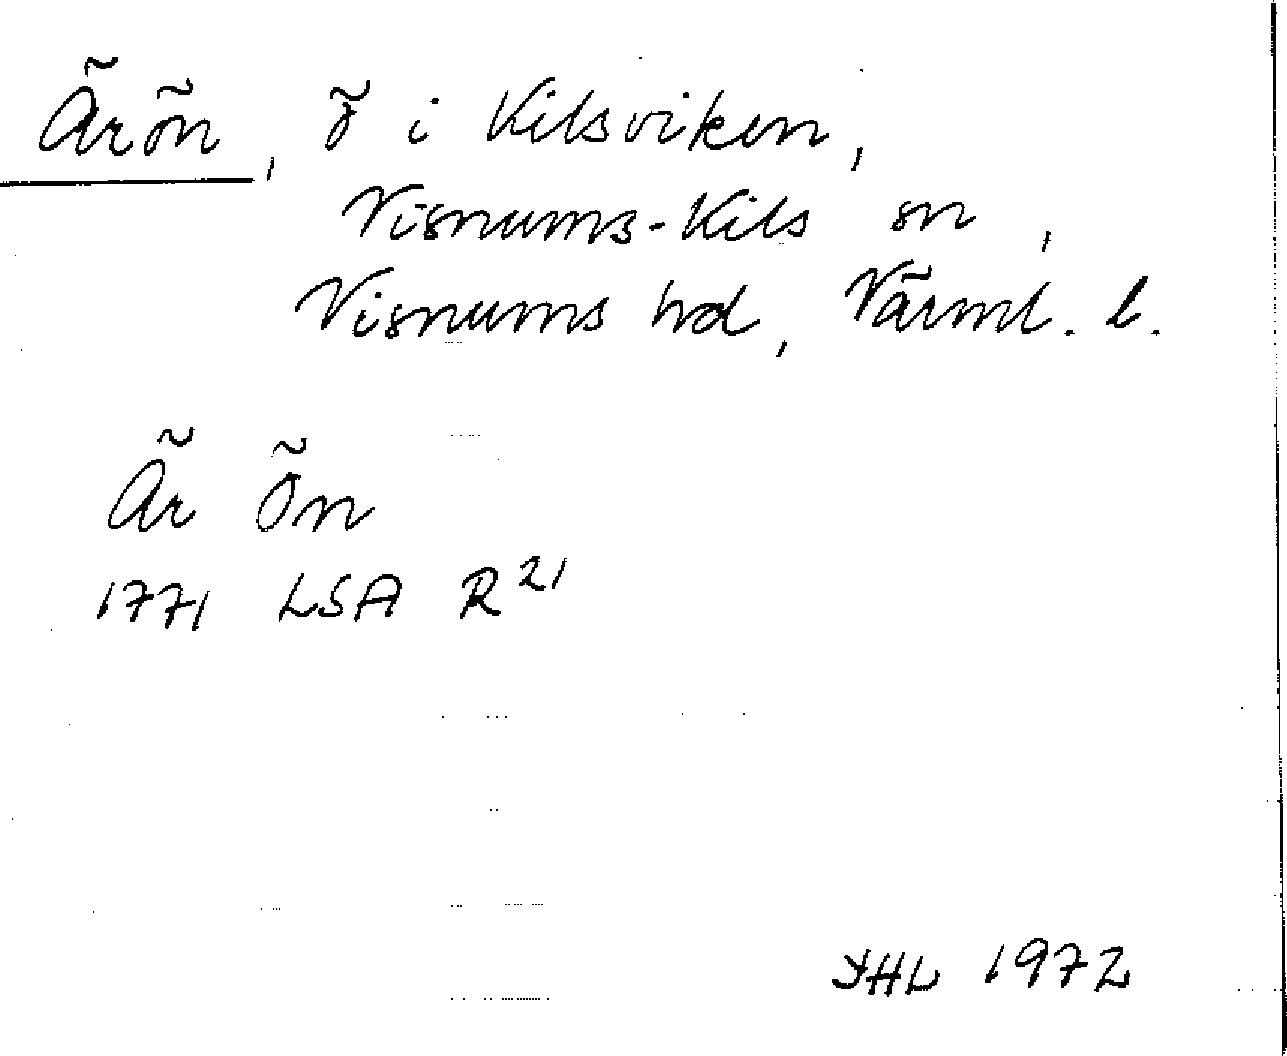 Ärön, ö i Kilsviken,
Visnums-Kils sn,
Visnums hd, Värml. l.
Är Ön
1771 LSA R 21
YHL 1972